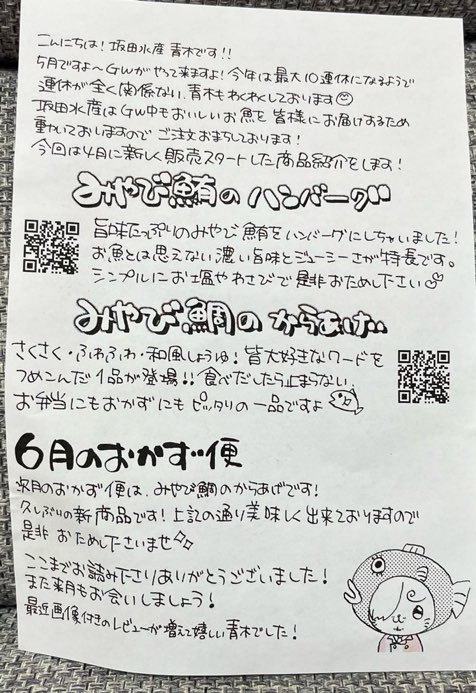 こんにちは！坂田水産 青木です！！
5月ですよ〜GWがやって来ますよ！今年は最大10連休になるようで
連休が全く関係ない、青木もわくわくしております☺
坂田水産はGW中もおいしいお魚を皆様にお届けするため
動いておりますのでご注文お待ちしております！
今回は4月に新しく販売スタートした商品紹介をします！
みやび鮪のハンバーグ
旨味たっぷりのみやび鮪をハンバーグにしちゃいました！
お魚とは思えない濃い旨味とジューシーさが特長です。
シンプルにお塩やわさびで是非おためし下さい♡
みやび鯛のからあげ
さくさく・ふわふわ・和風しょうゆ！皆大好きなワードを
つめこんだ1品が登場！！食べだしたら止まらない、
お弁当にもおかずにもピッタリの一品ですよ
6月のおかず便
来月のおかず便は、みやび鯛のからあげです！
久しぶりの新商品です！上記の通り美味しく出来ておりますので
是非おためし下さいませ✧✧
ここまでお読み下さりありがとうございました！
また来月もお会いしましょう！
最近画像付きのレビューが増えて嬉しい青木でした！